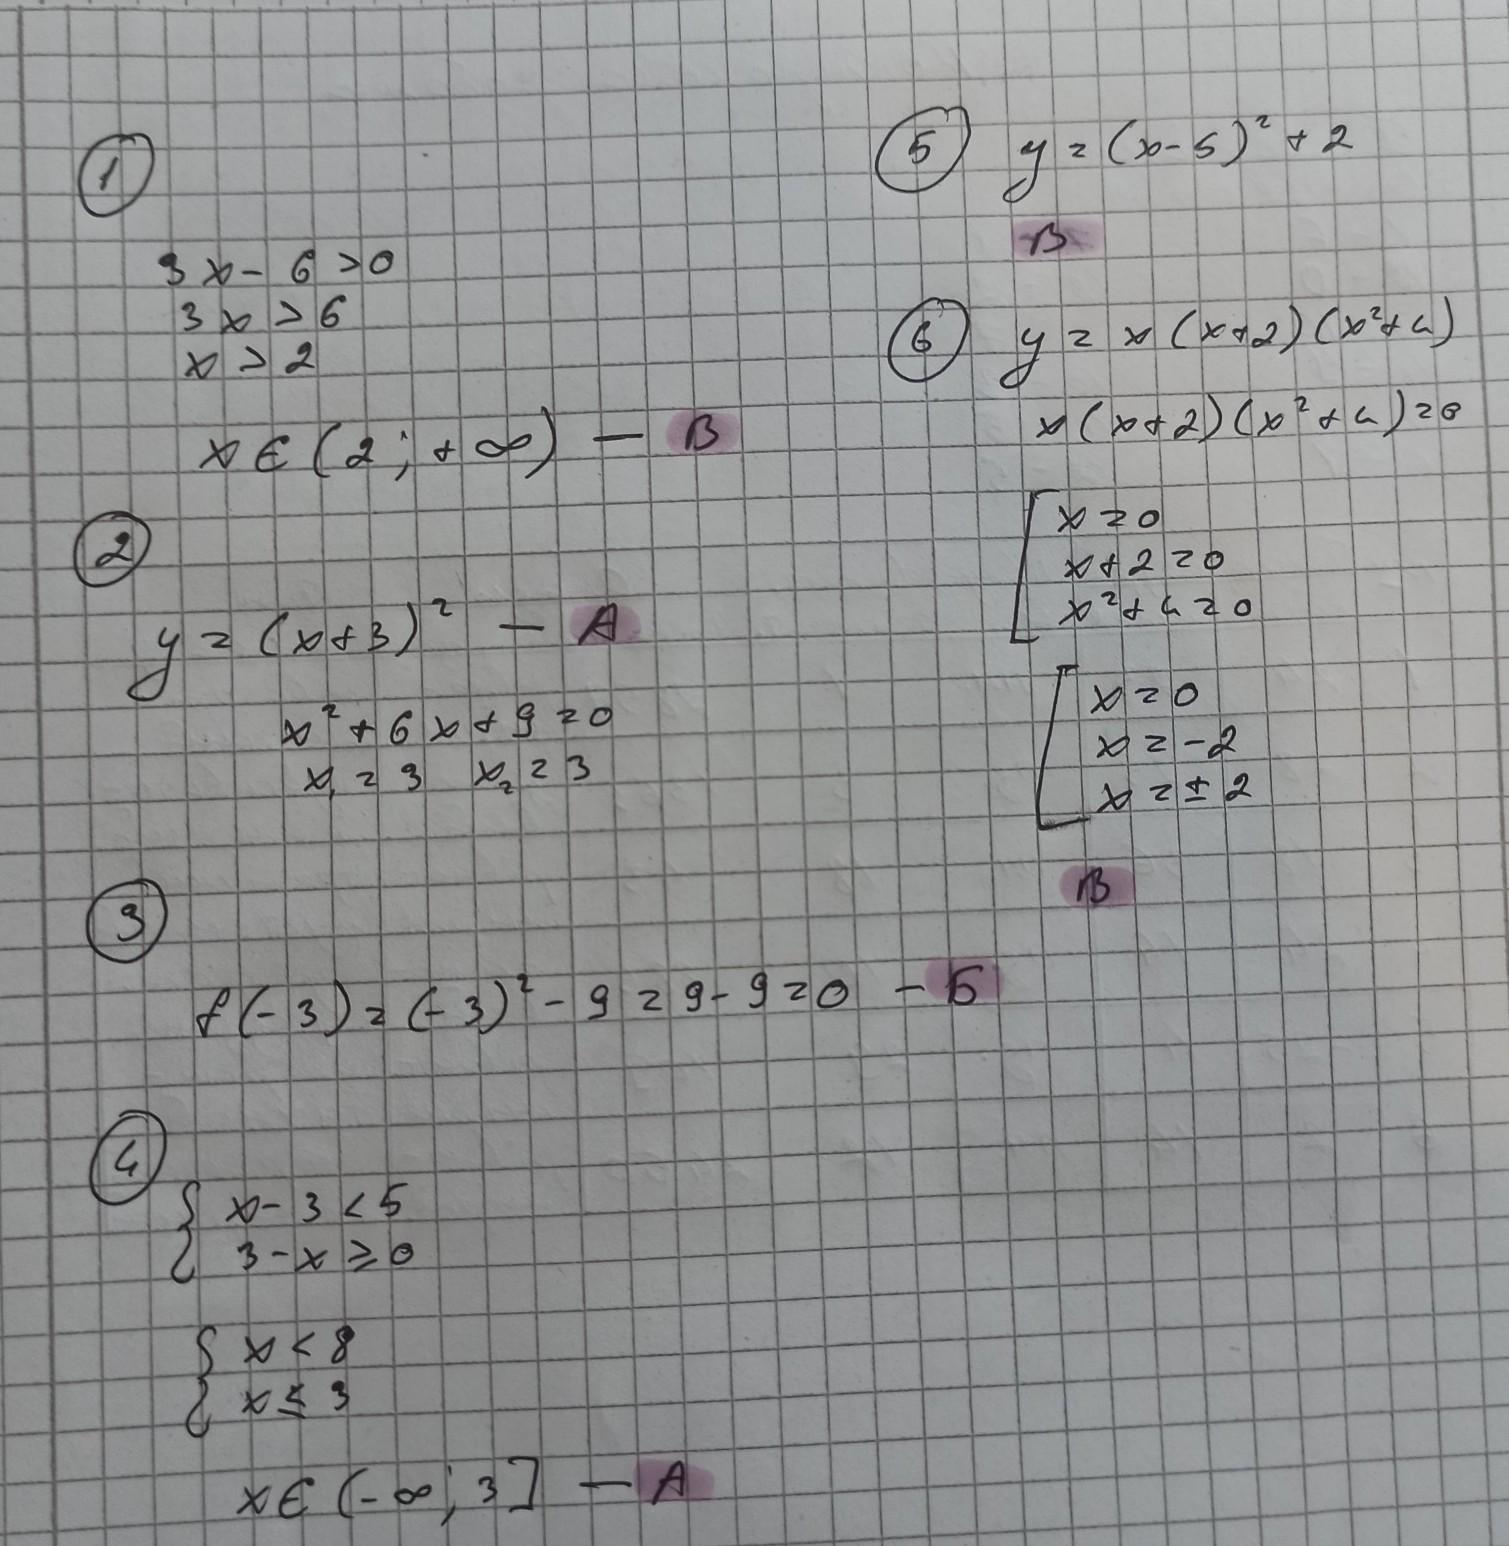 ①
3x - 6 > 0
3x > 6
x > 2
x ∈ (2; +∞) — В
②
y = (x+3)² — А
x² + 6x + 9 = 0
x₁ = 3 x₂ = 3
③
f(-3) = (-3)² - 9 = 9 - 9 = 0 — Б
④
{ x - 3 < 5
3 - x ≥ 0
{ x < 8
x ≤ 3
x ∈ (-∞; 3] — А
⑤ y = (x-5)² + 2
В
⑥ y = x(x+2)(x²+4)
x(x+2)(x²+4) = 0
[ x = 0
x + 2 = 0
x² + 4 = 0
[ x = 0
x = -2
x = ±2
В